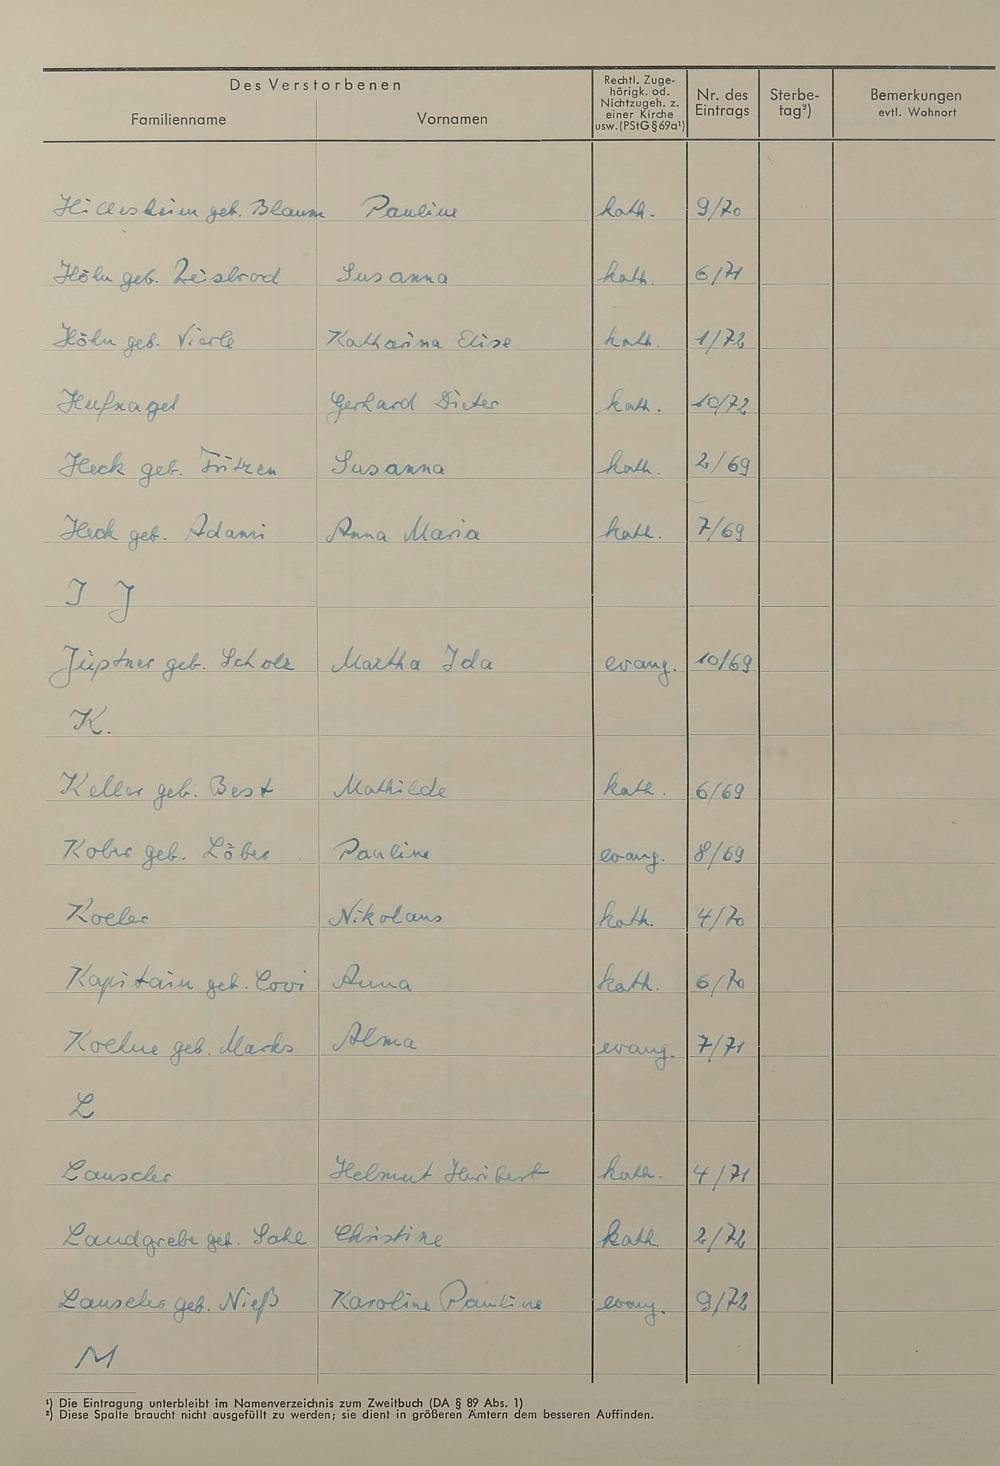 Des Verstorbenen
Familienname
Vornamen
Rechtl. Zuge-
hörigk. od.
Nichtzugeh. z.
einer Kirche
usw. (PStG § 69a¹)
Nr. des
Eintrags
Sterbe-
tag²)
Bemerkungen
evtl. Wohnort
Hillesheim geb. Blaum Pauline kath. 9/70
Höhn geb. Zeisbrod Susanna kath. 6/71
Höhn geb. Vierle Katharina Elise kath. 1/72
Hufnagel Gerhard Dieter kath. 10/72
Heck geb. Fritzen Susanna kath. 2/69
Heck geb. Adami Anna Maria kath. 7/69
I J
Jüptner geb. Scholz Martha Ida evang. 10/69
K.
Keller geb. Best Mathilde kath. 6/69
Kober geb. Löber Pauline evang. 8/69
Koeler Nikolaus kath. 4/70
Kapitain geb. Covi Anna kath. 6/70
Koehne geb. Marks Alma evang. 7/71
L
Lauscher Helmut Heribert kath. 4/71
Landgrebe geb. Sahl Christine kath. 2/72
Lauscher geb. Nieß Karoline Pauline evang. 9/72
M
¹) Die Eintragung unterbleibt im Namenverzeichnis zum Zweitbuch (DA § 89 Abs. 1)
²) Diese Spalte braucht nicht ausgefüllt zu werden; sie dient in größeren Ämtern dem besseren Auffinden.